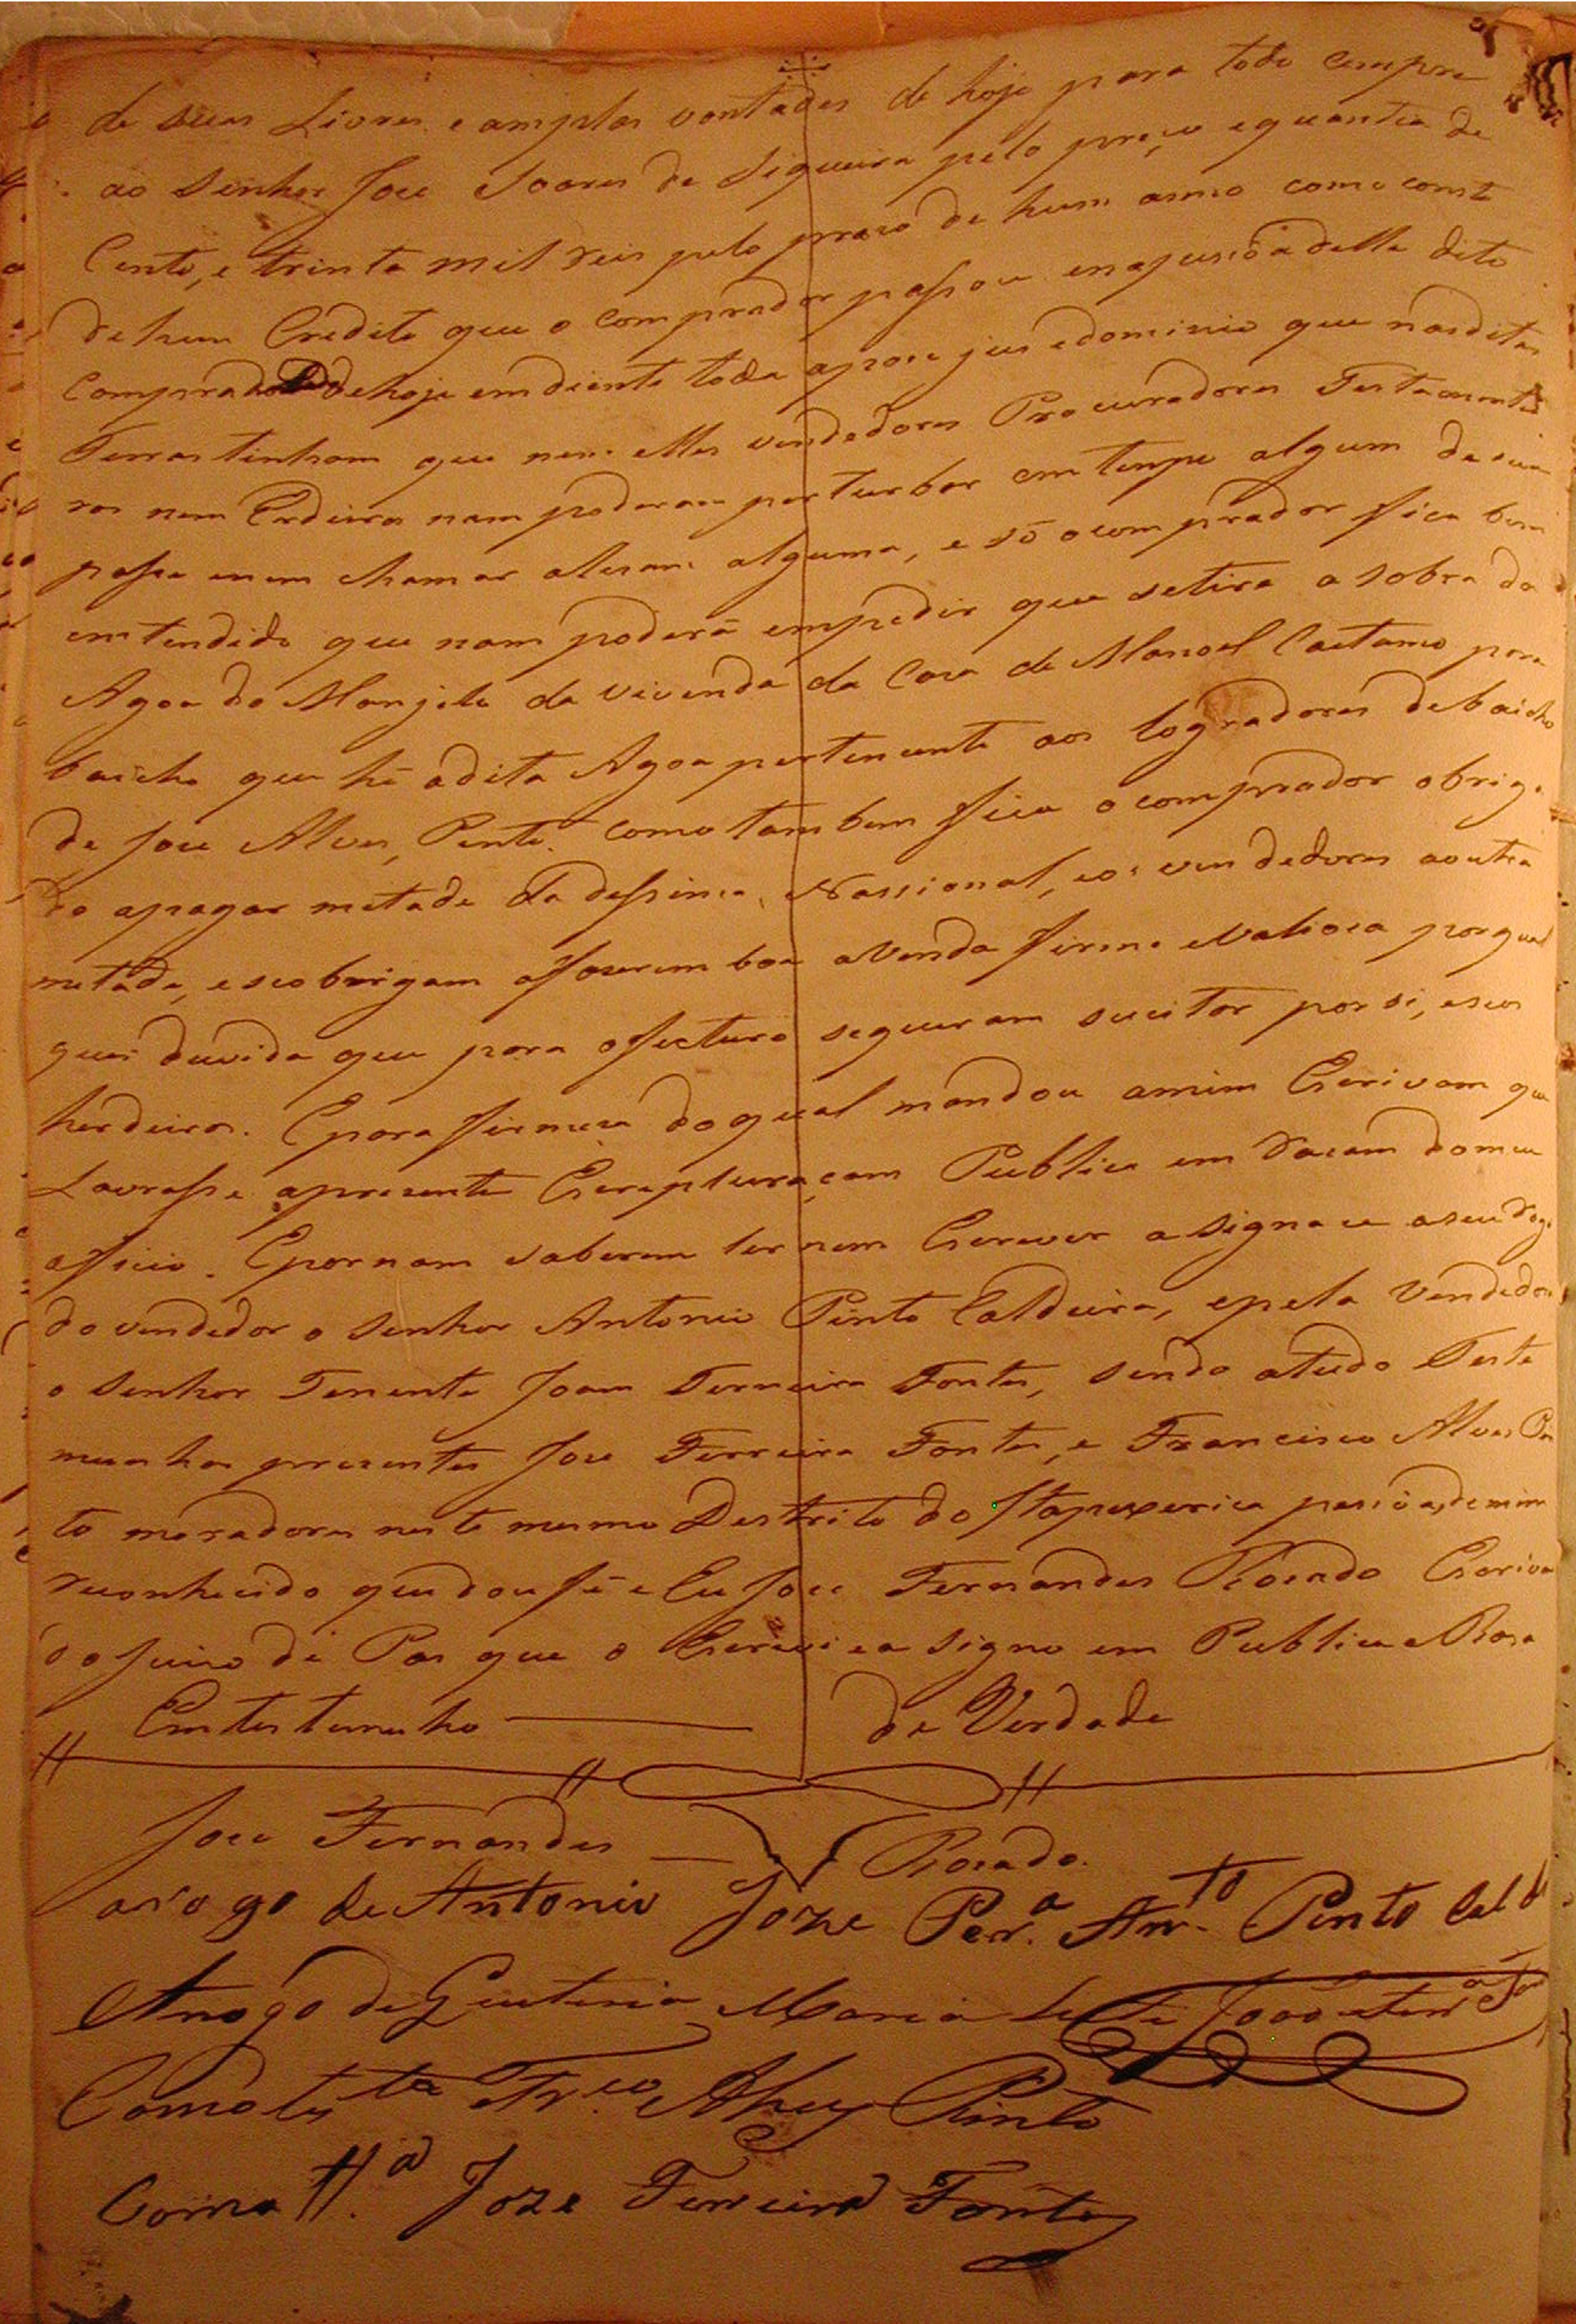 de suas Livres e amplas vontades de hoje para todo cempre
ao Senhor Joze Soares de Siqueira pelo preço e quantia de
Cento, e trinta mil reis pelo prazo de hum anno como const
de hum Credito que o comprador passou en a pesuôa delle dito
Comprador de hoje em diente toda a pose jus e dominio que nas ditas
Terras tinham que nem elles vendedores Procuradores Testament
ros nem Erdeiros nam poderam perturbar em tempo algum da sua
passe nem chamar a lesam alguma, e só o comprador fica bem
emtendido que nam poderá empedir que se tire a sobra da
Agoa do Monjolo da vivenda da Caza de Manoel Caetano para
baicho que hé a dita Agoa pertencente aos logradores debaicho
de Joze Alves Pento. Como tambem fica o comprador obriga
do apagar metade da dessima Nassional, e os vendedores a outra
metade, e se obrigam afazerem boa a Venda firme e Valioza por qual
quer duvida que para o fucturo seguiram sucitar por si, e seus
herdeiros. E para firmeza do qual mandou amim Escrivam que
Lavrasse aprezente Escripturaçam Publica em razam do meu
officio. E por nam saberem ler nem Escrever asignace a seu rogo
do vendedor o Senhor Antonio Pinto Caldeira, e pela Vendedora
o Senhor Tenente Joam Ferreira Fontes, sendo a tudo Teste
munhas prezentes Joze Ferreira Fontes, e Francisco Alves Pin
to moradores neste mesmo Destrito do Itapexerica pesiôas de mim
reconhecido que dou fé e Eu Joze Fernandes Rozado Escrivam
do Juizo de Pas que o Escrevi e a Signo em Publico e Razo
Em testemunho de Verdade
Joze Fernandes Rozado.
arogo de Antonio Joze Per.ª Ant.to Pinto Cald
Arogo de Maria João Ferr.ª Fon
Como tes.ta Fr.co Alvez Pinto
Como tt.ª Joze Ferreira Fontes